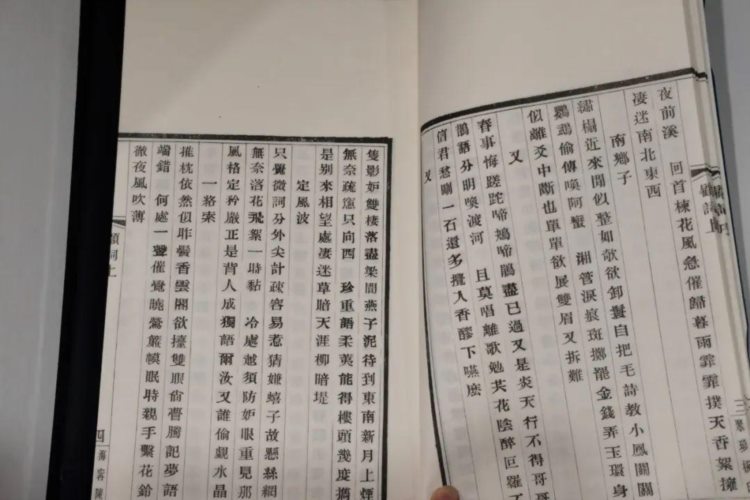 夜前溪 回首楝花風急催歸暮雨霏霏撲天香絮擁
淒迷南北東西
南鄉子
繡榻近來閒似整如欹欲卸鬟自把毛詩教小鳳關關
鸚鵡偷傳喚阿蠻 湘管淚痕斑擲罷金錢弄玉環身
似離爻中斷也單單欲展雙眉又拆難
又
春事悔蹉跎啼鴂啼鵑盡已過又是炎天行不得哥
鵑語分明喚渡河 且莫唱離歌勉共花陰醉叵羅了
信君愁一石還多攪入香醪下嚥麼
又
三
隻影妒雙棲落盡梁間燕子泥待到東南新月上煙
無奈疏窗只向西 珍重語柔荑能得樓頭幾度攜
是別來相望處淒迷草暗天涯柳暗堤
定風波
只覺微詞分外尖計疏容易惹猜嫌蟢子故懸絲網
無奈落花飛絮一時黏 冷處越須防妒眼重見那
風格定矜嚴正是背人成獨語爾汝又誰偷覷水晶
一絡索
推枕依然似昨鬢香雲閣欲擡雙眼尙瞢騰記夢語
端錯 何處一聲催覺曉鶯簾幙眠時親手繫花鈴
徹夜風吹薄
詞上
四
海甯陳